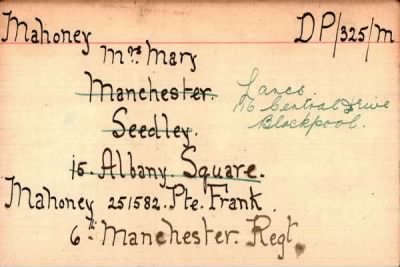 Mahoney DP/325/m
Mrs Mary
Manchester.
Seedley.
15. Albany Square.
Lancs.
76 Central Drive
Blackpool.
Mahoney 251582. Pte. Frank.
6th Manchester. Regt.